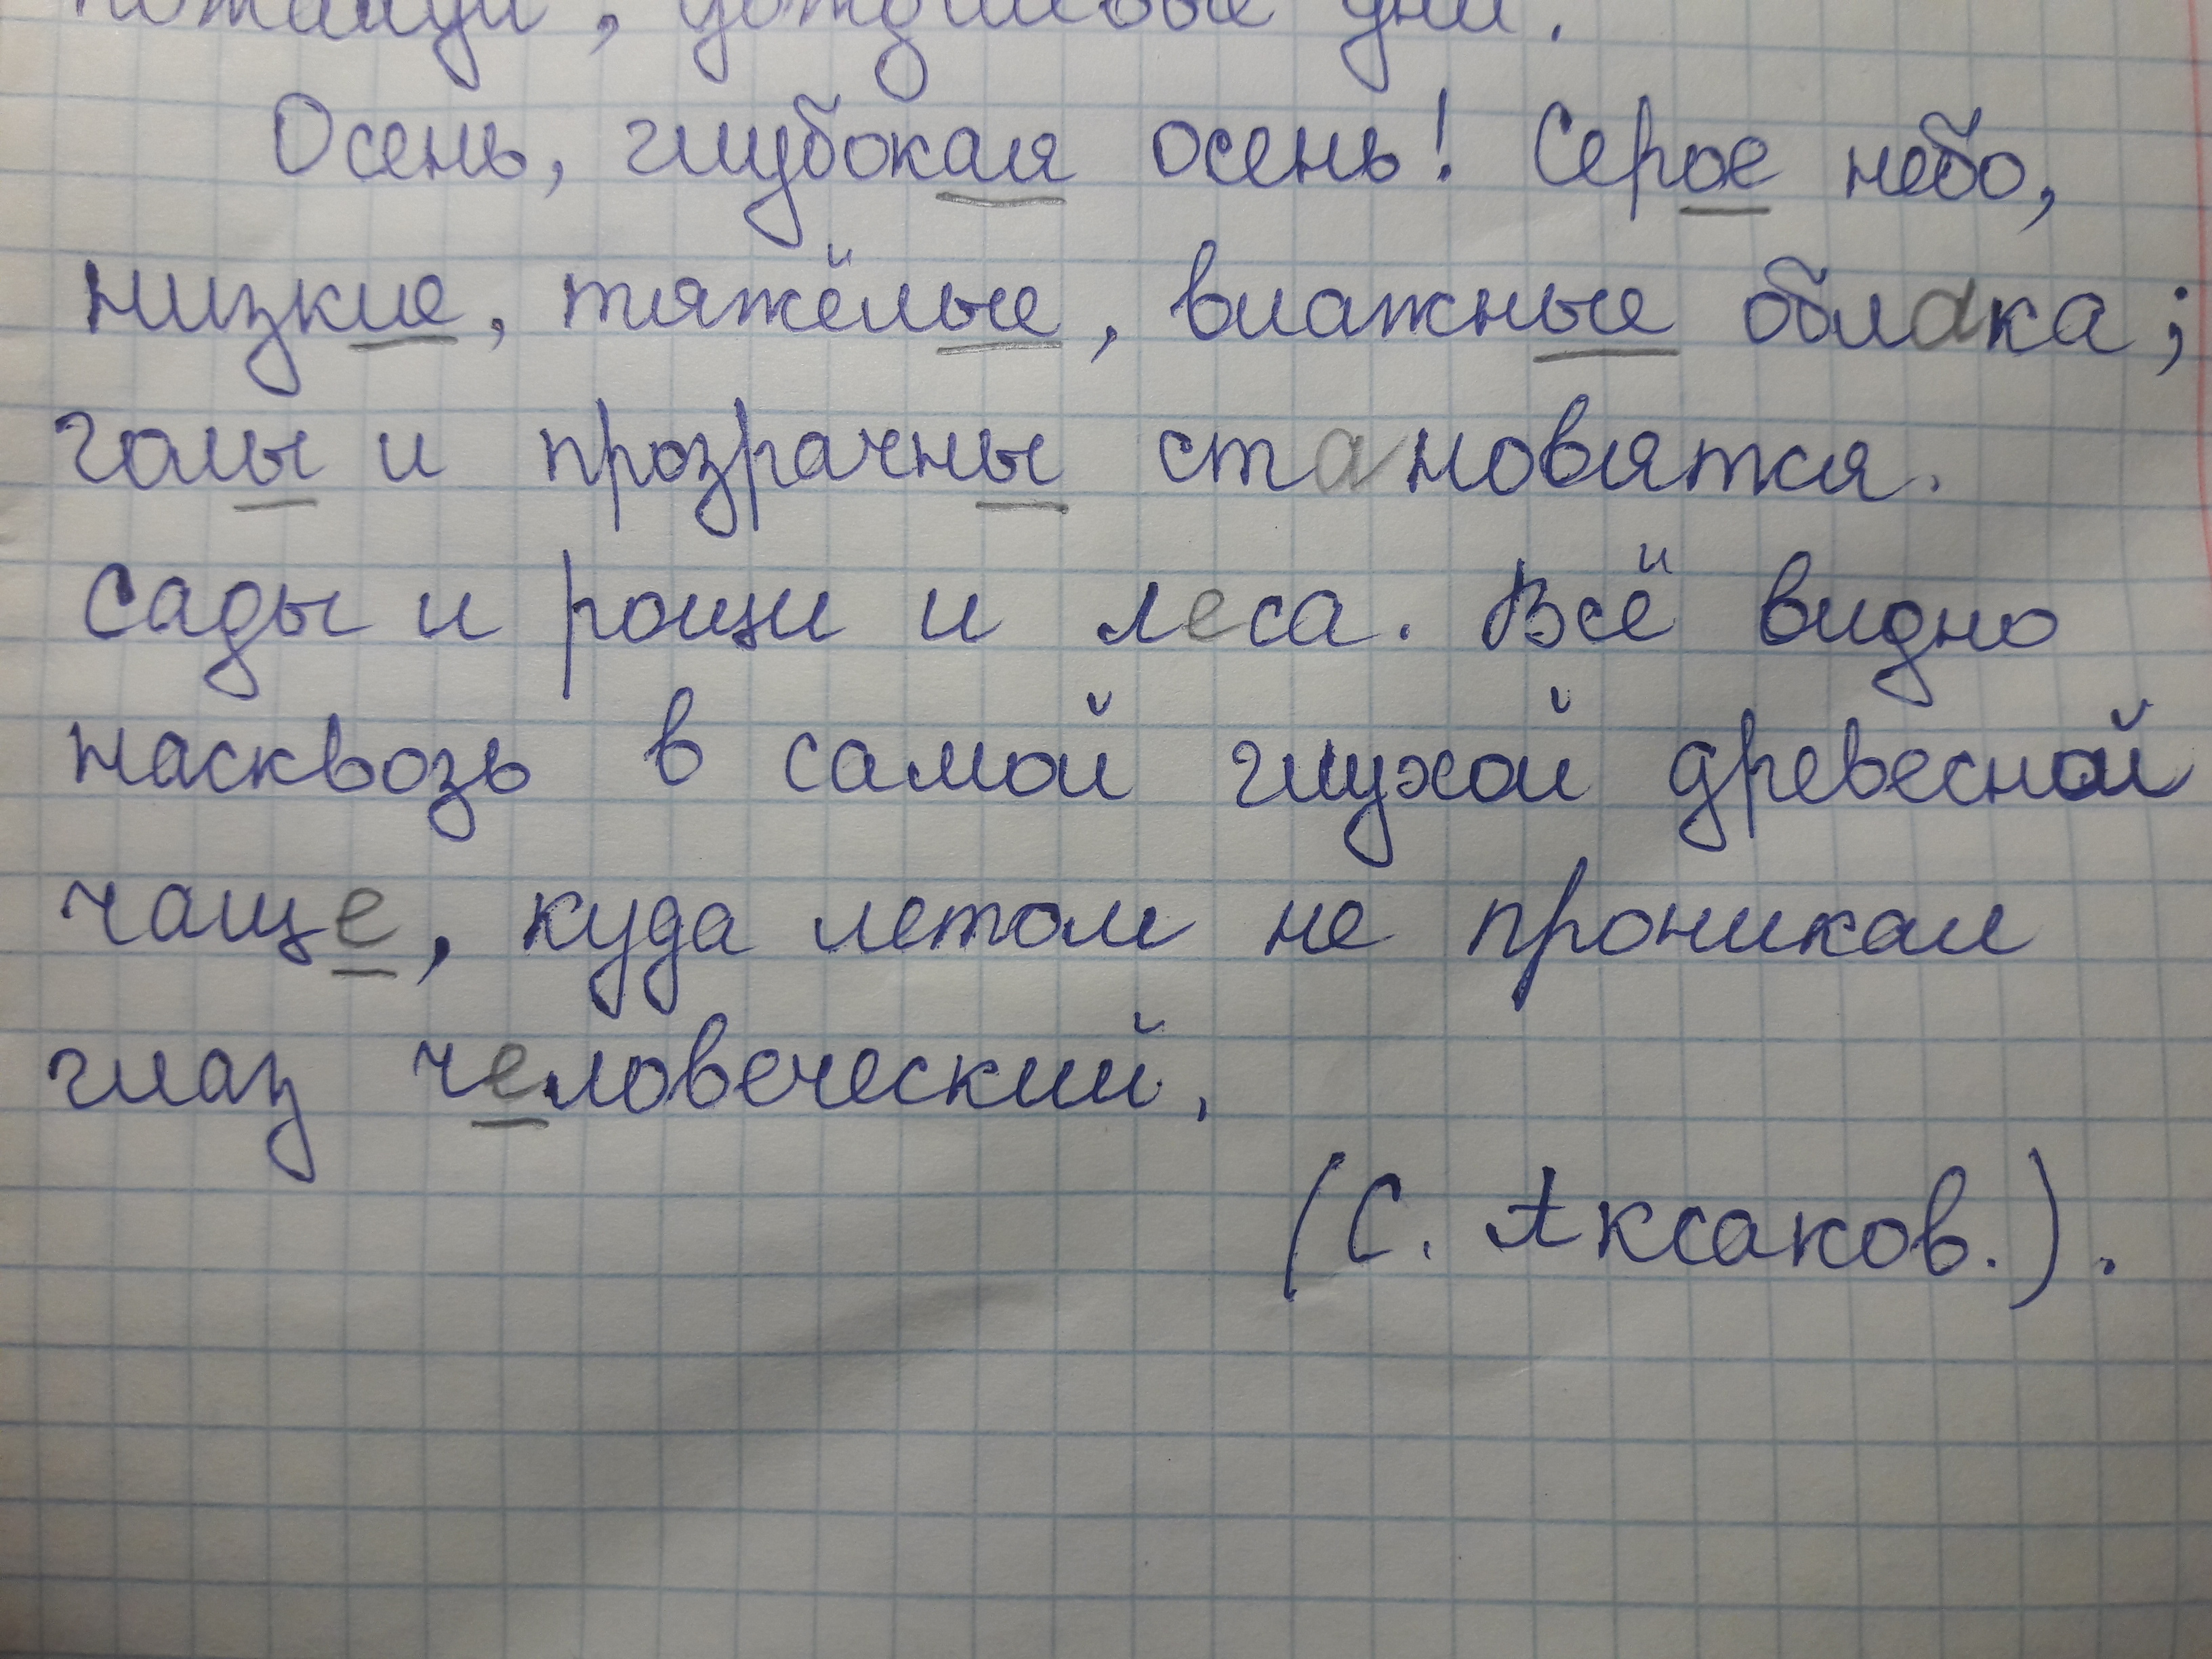 пожалуй, дождливые дни.
Осень, глубокая осень! Серое небо,
низкие, тяжёлые, влажные облака;
голы и прозрачны становятся.
Сады и рощи и леса. Всё видно
насквозь в самой глухой древесной
чаще, куда летом не проникал
глаз человеческий.
(С. Аксаков.).